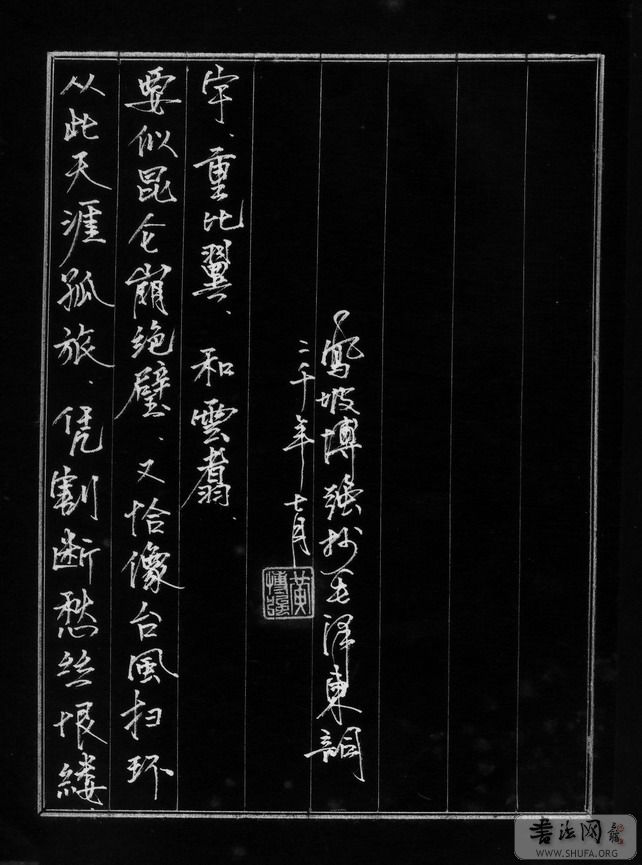 从此天涯孤旅、凭割断愁丝恨縷
要似昆仑崩绝壁、又恰像台風扫环
宇、重比翼、和雲翥、
坡博强抄毛泽東詞
二千年七月
黄博强
書法网
WWW.SHUFA.ORG